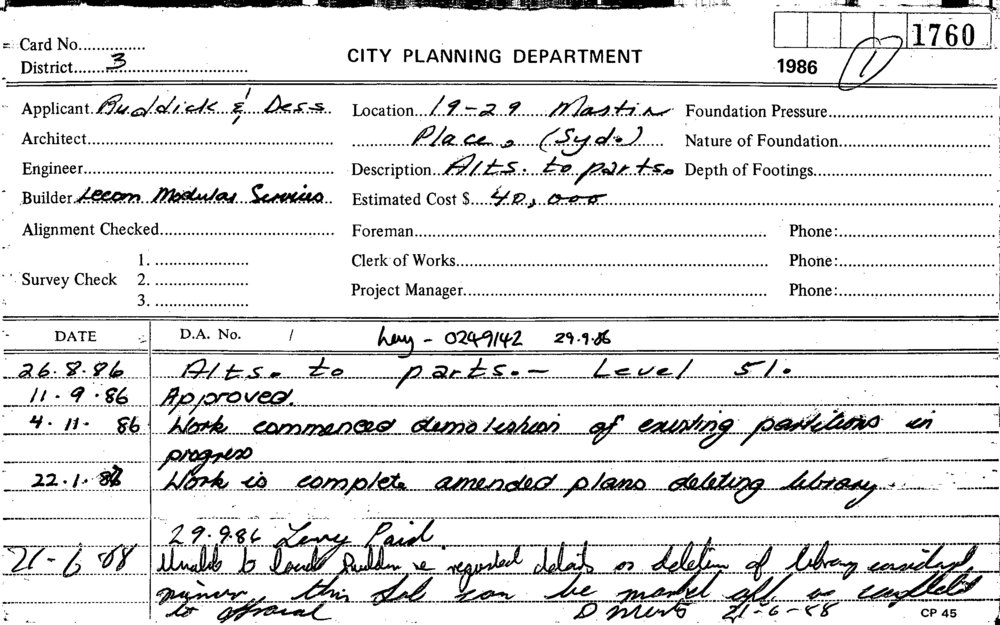 1760
Card No...............
CITY PLANNING DEPARTMENT
1986 1
District 3
Applicant Ruddick & Dess Location 19-29 Mastin Foundation Pressure
Architect Place, (Syd.) Nature of Foundation
Engineer Description Alts. to parts. Depth of Footings
Builder Lecom Modular Services Estimated Cost $ 40,000
Alignment Checked Foreman Phone:
1. Clerk of Works Phone:
Survey Check 2.
3. Project Manager Phone:
DATE D.A. No. / Levy - 0249142 29.9.86
26.8.86 Alts. to parts. - Level 51.
11.9.86 Approved.
4.11.86 Work commenced demolishion of existing partitions in
progress
22.1.87 Work is complete amended plans deleting library
29.9.86 Levy Paid.
21-6-88 Unable to locate Builder re requested details on deletion of library considered
minor, this Job can be marked off as completed
to approval 21-6-88
CP 45